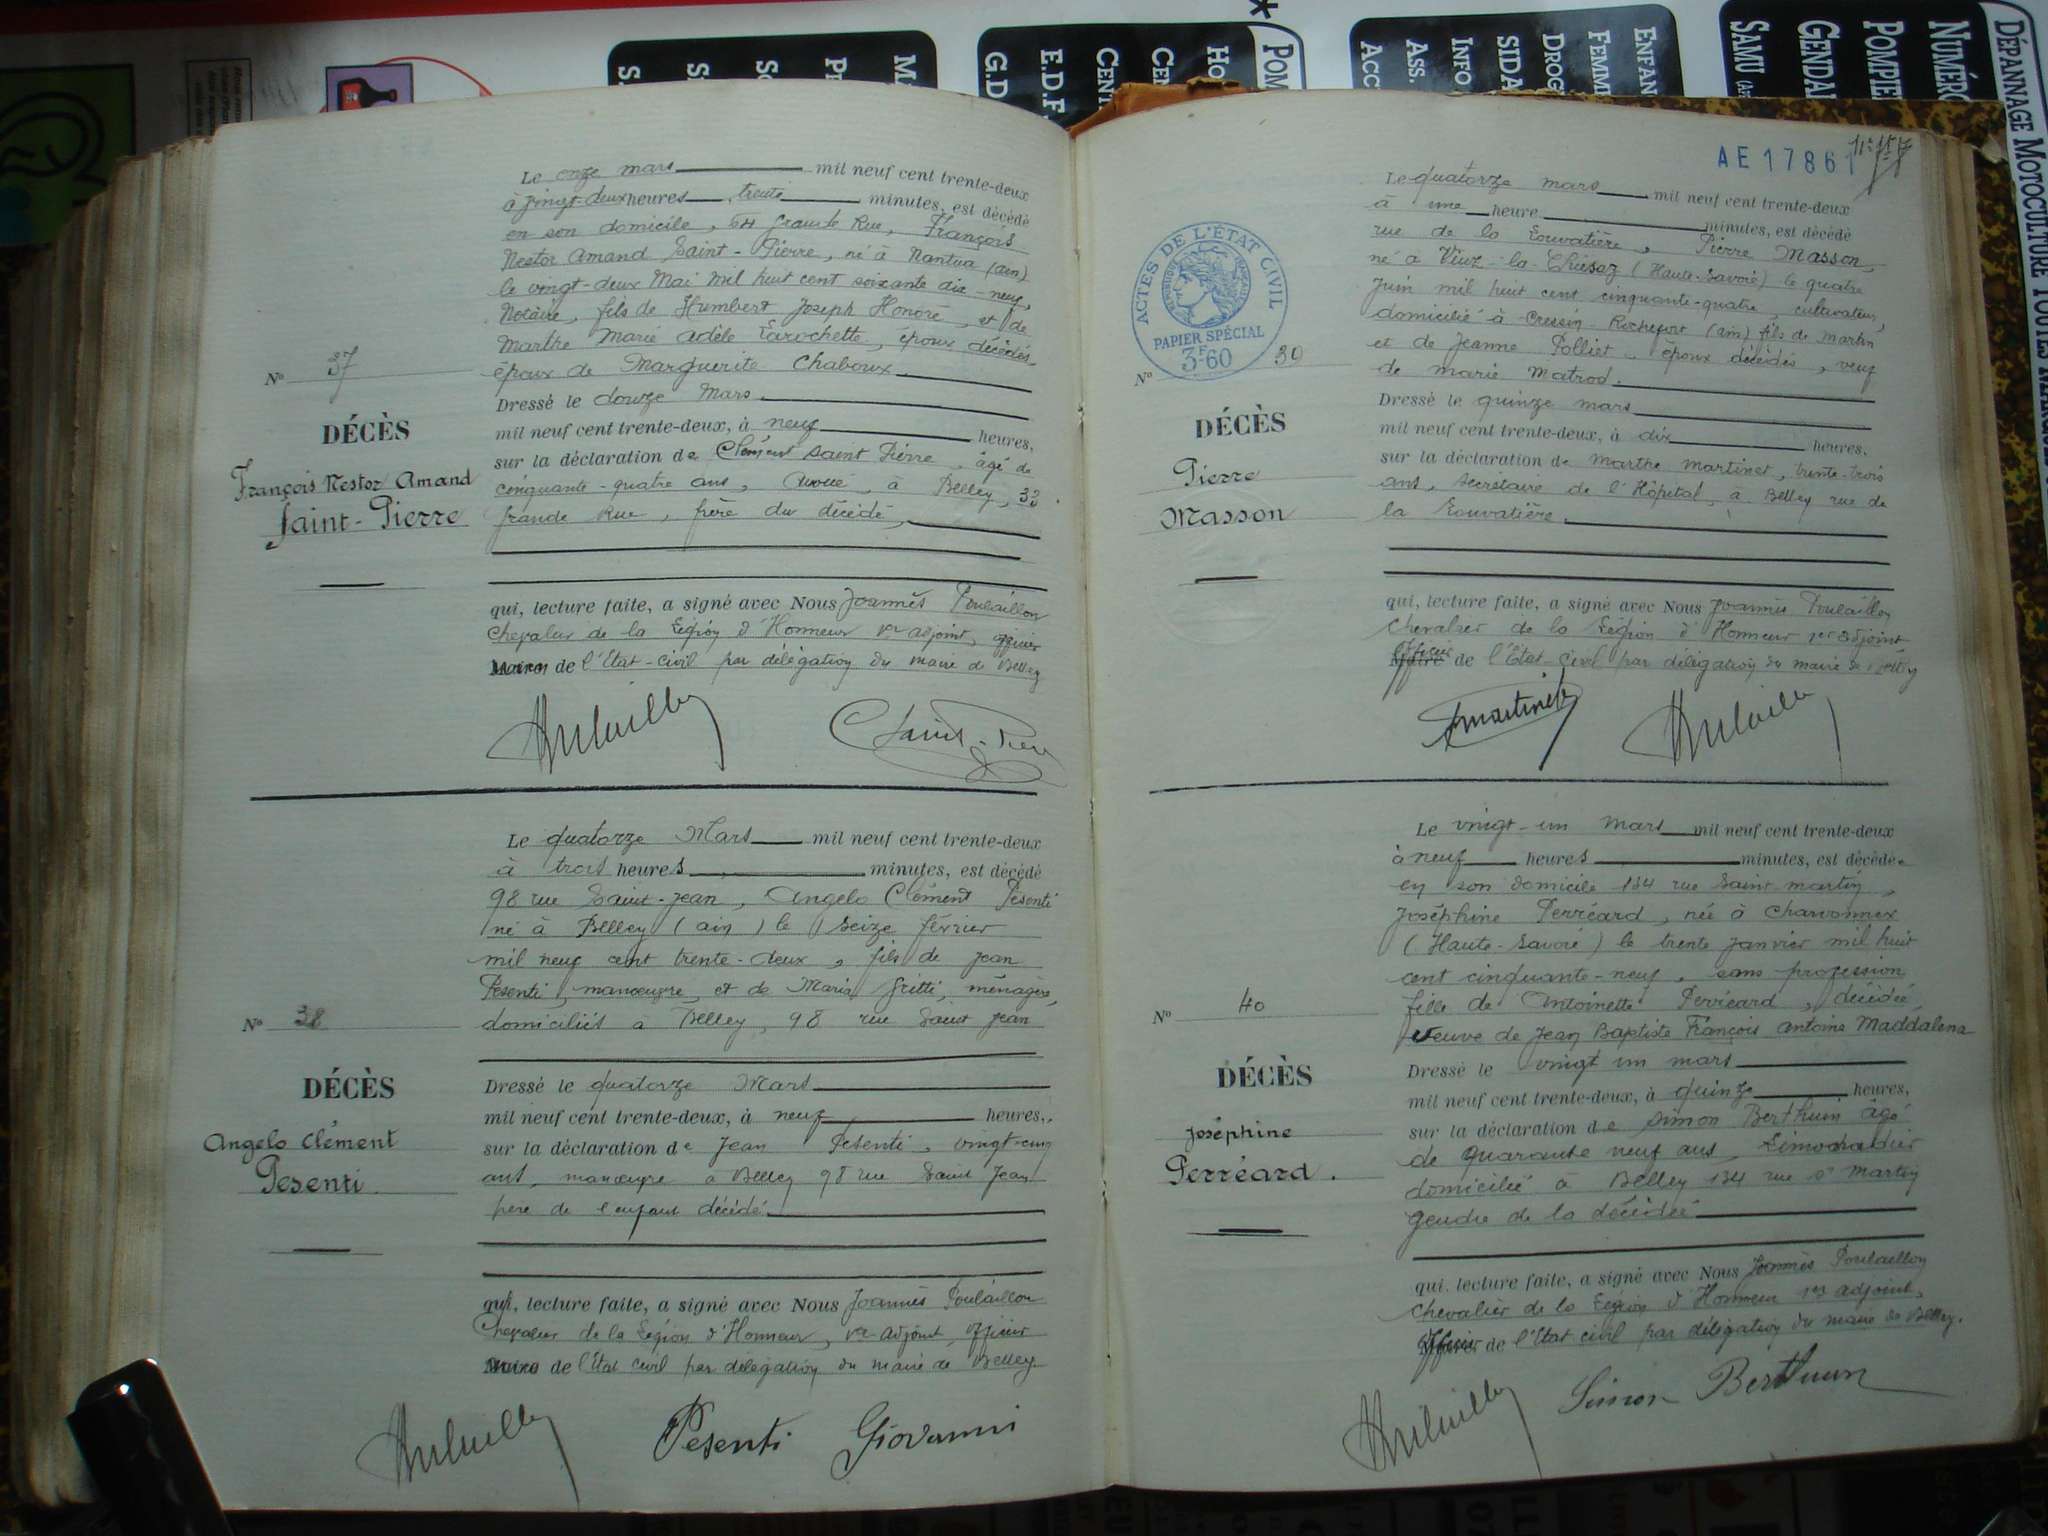 DÉPANNAGE MOTOCULTURE TOUTES
NUMÉRO
POMPIE
GENDA
SAMU
ENFAN
FEMM
DROG
SIDA
INFO
ASS.
ACC
POM
HO
CE
CENT
E.D.F
G.D
Le onze mars mil neuf cent trente-deux
à vingt-deux heures trente minutes, est décédé
en son domicile, 64 Grande Rue, François
Nestor Amand Saint-Pierre, né à Nantua (ain)
le vingt-deux Mai mil huit cent soixante dix-neuf,
Notaire, fils de Humbert Joseph Honoré, et de
Marthe Marie Adèle Larochette, époux décédés,
époux de Marguerite Chaboux
Nº 37
DÉCÈS
François Nestor Amand
Saint-Pierre
Dressé le douze Mars
mil neuf cent trente-deux, à neuf heures,
sur la déclaration de Clément Saint Pierre, âgé de
cinquante-quatre ans, Avoué, à Belley, 33
grande Rue, frère du décédé,
qui, lecture faite, a signé avec Nous Joannès Poulaillon
Chevalier de la Légion d'Honneur 1er adjoint, officier
Maire de l'Etat-civil par délégation du maire de Belley
C Saint-Pierre
Le quatorze Mars mil neuf cent trente-deux
à trois heures minutes, est décédé
98 rue Saint-Jean, Angelo Clément Pesenti
né à Belley (ain) le seize février
mil neuf cent trente-deux, fils de Jean
Pesenti, manœuvre, et de Maria Gritti, ménagère,
domiciliés à Belley, 98 rue Saint Jean
Nº 38
DÉCÈS
Angelo Clément
Pesenti
Dressé le quatorze Mars
mil neuf cent trente-deux, à neuf heures,
sur la déclaration de Jean Pesenti, vingt-cinq
ans, manœuvre à Belley 98 rue Saint Jean
père de l'enfant décédé
qui, lecture faite, a signé avec Nous Joannès Poulaillon
Chevalier de la Légion d'Honneur, 1er adjoint, officier
Maire de l'Etat civil par délégation du maire de Belley
Pesenti Giovanni
AE 17861
ACTES DE L'ÉTAT CIVIL
RÉPUBLIQUE FRANÇAISE
PAPIER SPÉCIAL
3F60
Le quatorze mars mil neuf cent trente-deux
à une heure minutes, est décédé
rue de la Louvatière, Pierre Masson,
né à Viuz-la-Chiésaz (Haute-Savoie) le quatre
Juin mil huit cent cinquante-quatre, cultivateur,
domicilié à Cressin-Rochefort (ain) fils de Martin
et de Jeanne Polliet, époux décédés, veuf
de marie Matrod.
Nº 39
DÉCÈS
Pierre
Masson
Dressé le quinze mars
mil neuf cent trente-deux, à dix heures,
sur la déclaration de Marthe Martinet, trente-trois
ans, secrétaire de l'Hôpital, à Belley rue de
la Louvatière.
qui, lecture faite, a signé avec Nous Joannès Poulaillon
Chevalier de la Légion d'Honneur 1er adjoint
officier Maire de l'Etat-Civil par délégation du maire de Belley
Martinet
Le vingt-un mars mil neuf cent trente-deux
à neuf heures minutes, est décédée
en son domicile 134 rue Saint martin,
Joséphine Perréard, née à Charvonnex
(Haute-Savoie) le trente janvier mil huit
cent cinquante-neuf, sans profession
fille de Antoinette Perréard, décédée,
veuve de Jean Baptiste François antoine Maddalena
Nº 40
DÉCÈS
Joséphine
Perréard.
Dressé le vingt un mars
mil neuf cent trente-deux, à quinze heures,
sur la déclaration de Simon Berthuin âgé
de quarante neuf ans, Limonadier
domicilié à Belley 134 rue St Martin
gendre de la décédée
qui, lecture faite, a signé avec Nous Joannès Poulaillon
Chevalier de la Légion d'Honneur 1er adjoint,
officier Maire de l'Etat civil par délégation du maire de Belley.
Simon Berthuin